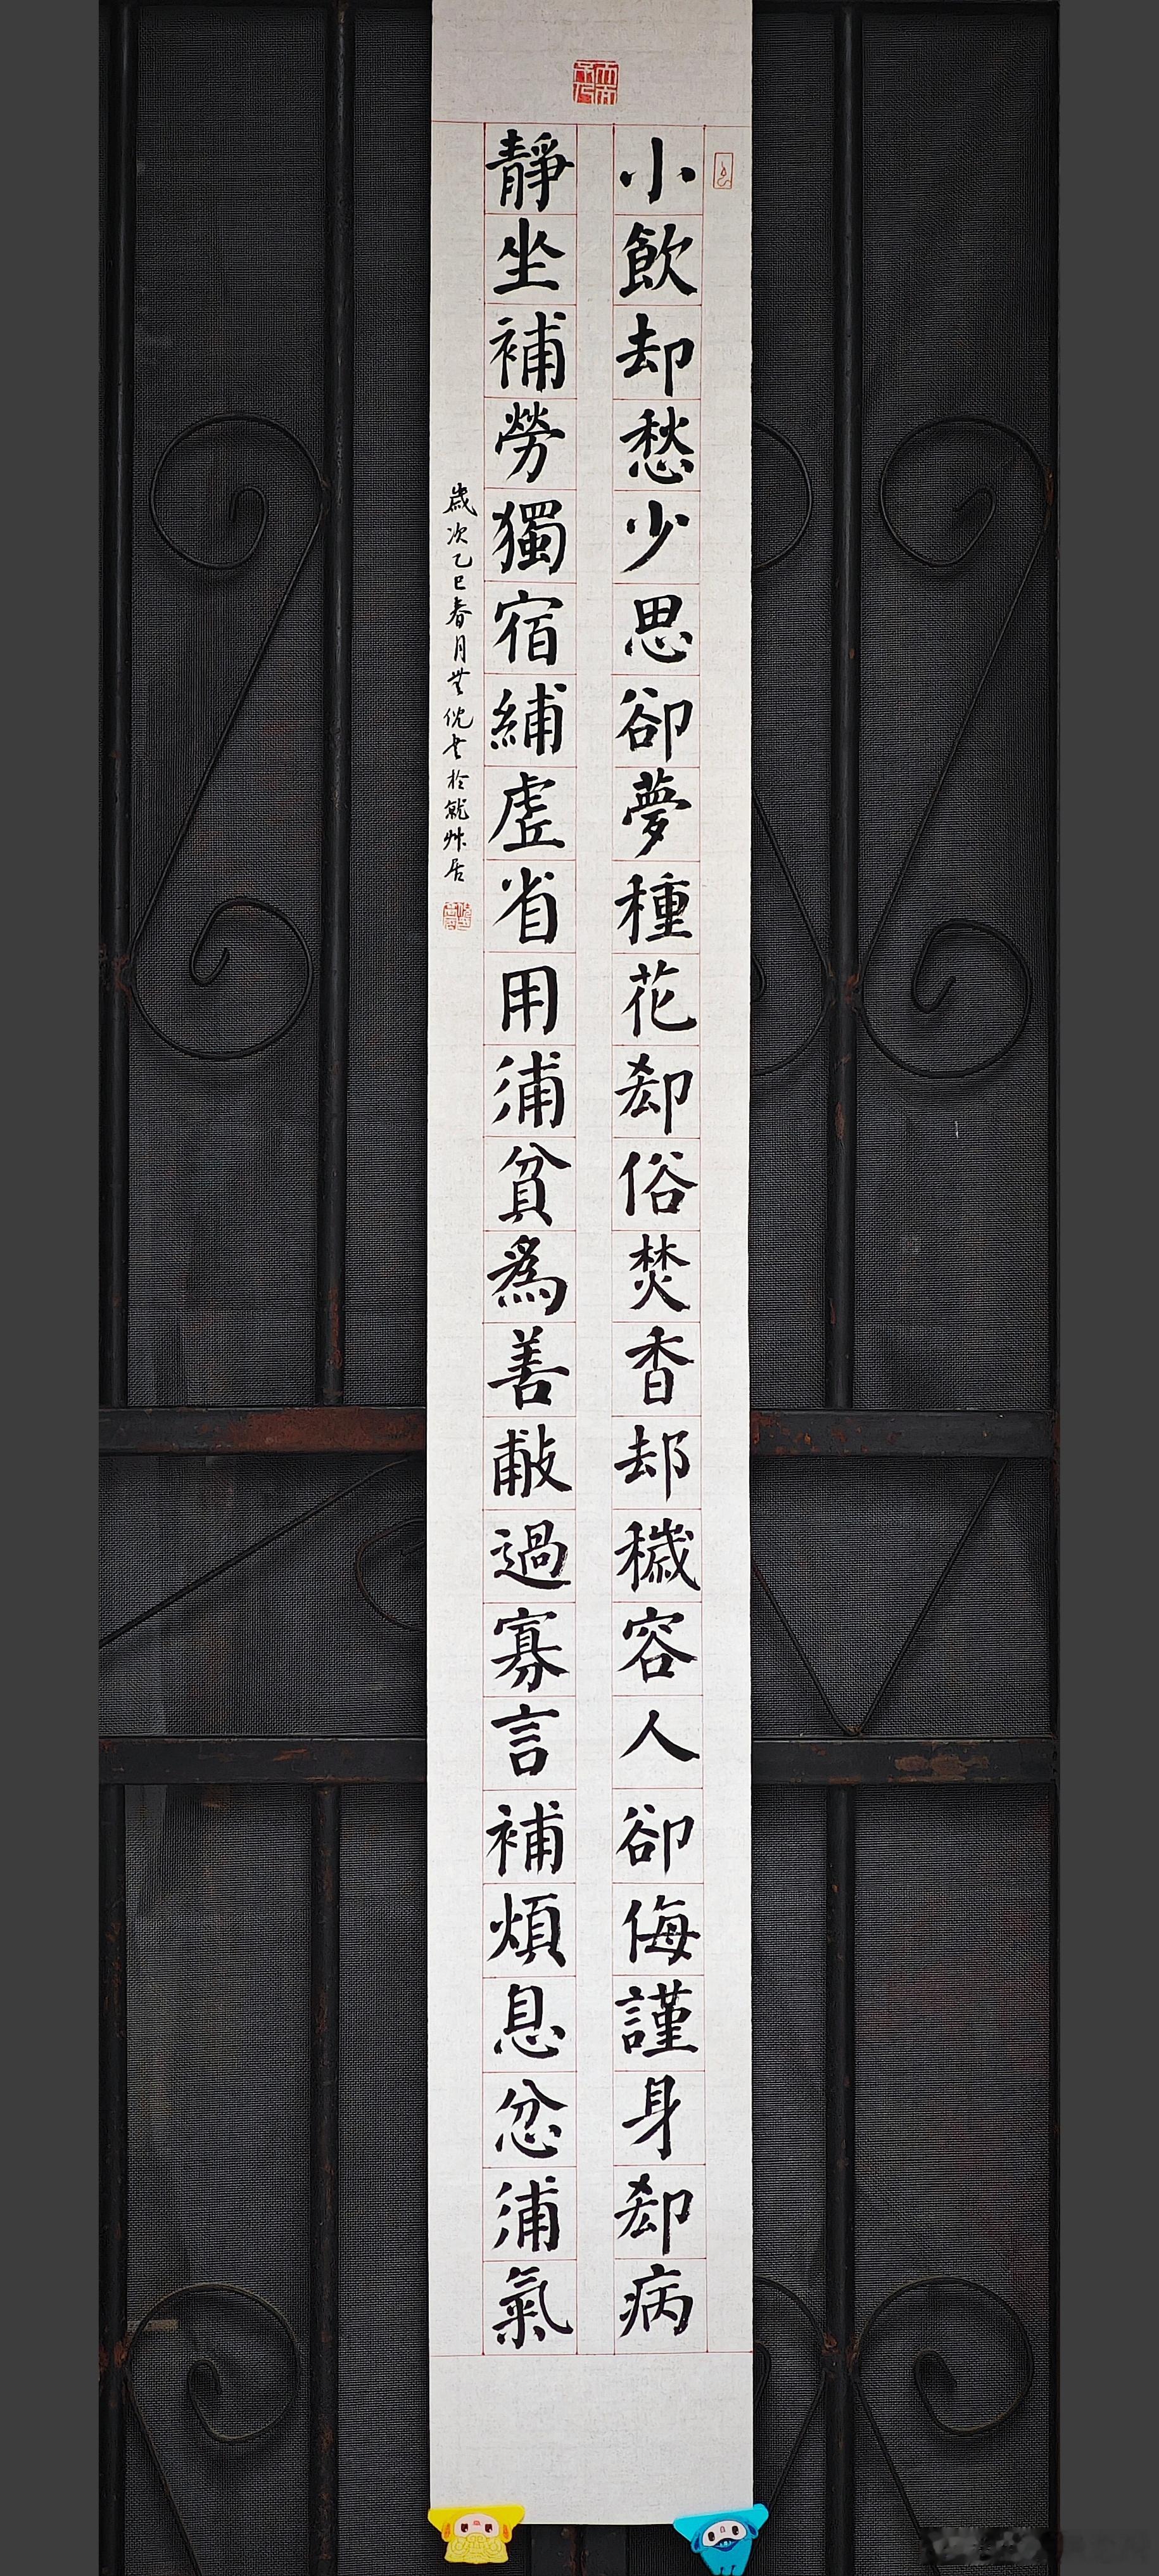 小飲却愁少思卻夢種花㕁俗焚香却穢容人卻侮謹身㕁病
靜坐補勞獨宿䋠虛省用浦貧爲善過寡言補煩息忿浦氣
歲次乙巳春月書於就艸居